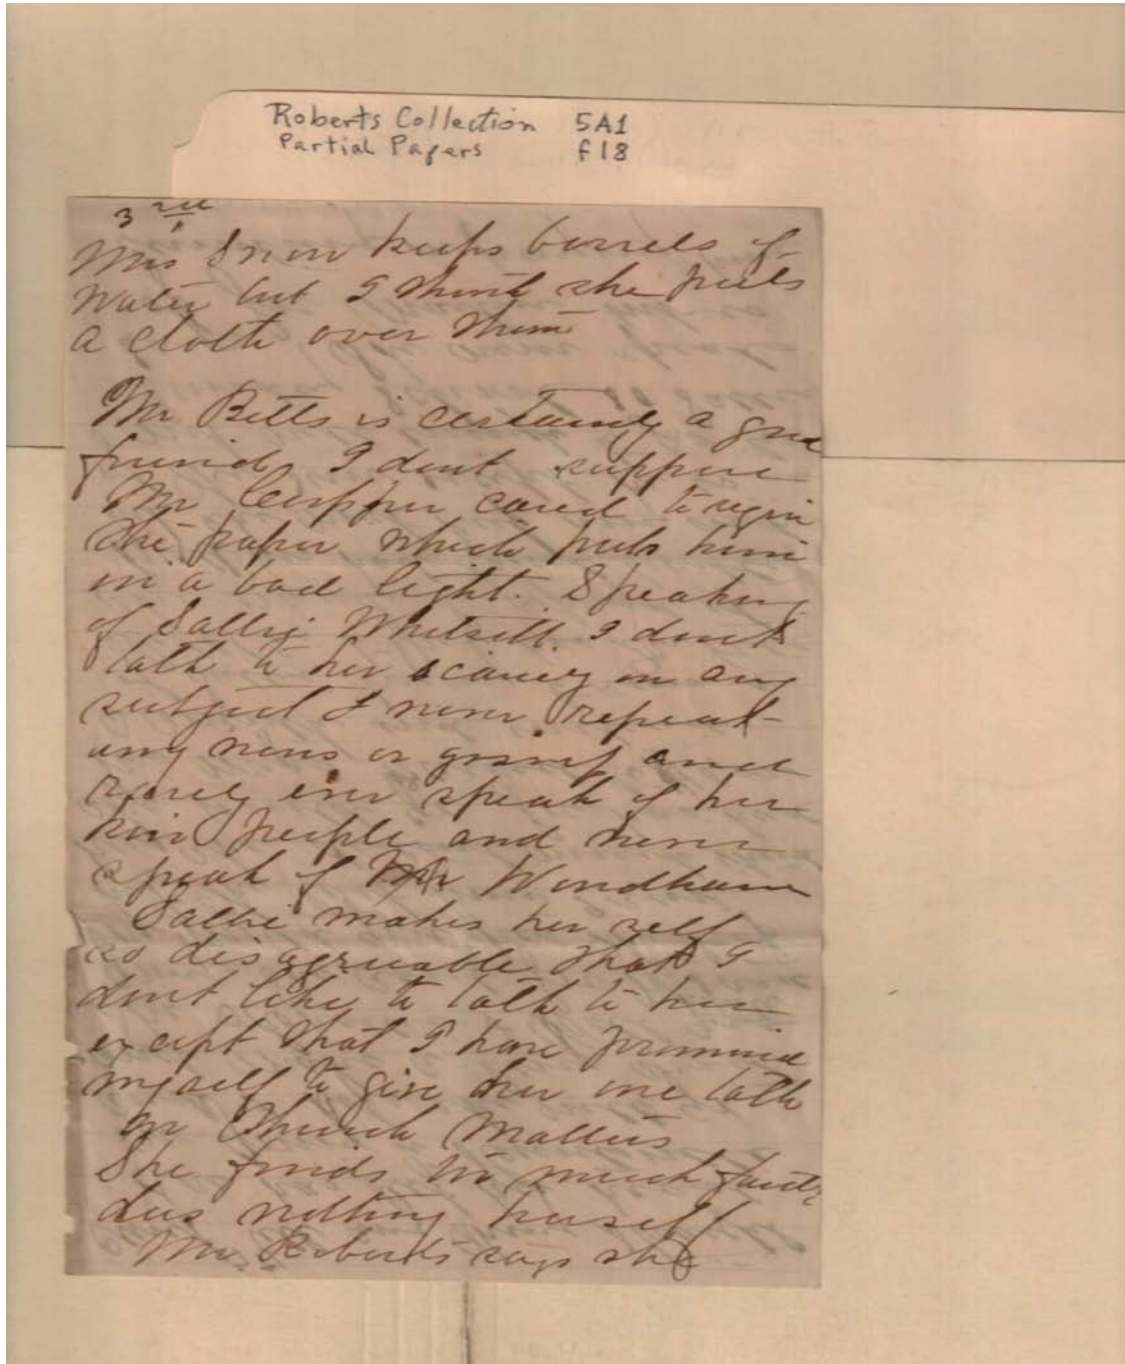 Roberts Collection 5A1
Partial Papers f18
3rd
Mrs Snow keeps barrels of
water but I think she puts
a cloth over them
Mr Betts is certainly a good
friend, I dont suppose
Mr cared to sign
the paper which puts him
in a bad light. Speaking
of Sallie Whitsitt. I dont
talk to her scarcely on any
subject I never repeat
any news or gossip and
rarely ever speak of her
kin people and never
speak of Mr Windham
Sallie makes her self
so disagreeable that I
dont like to talk to her
except that I have promised
myself to give her one talk
on Church Matters
She finds so much fault &
does nothing herself
Mr Roberts says she